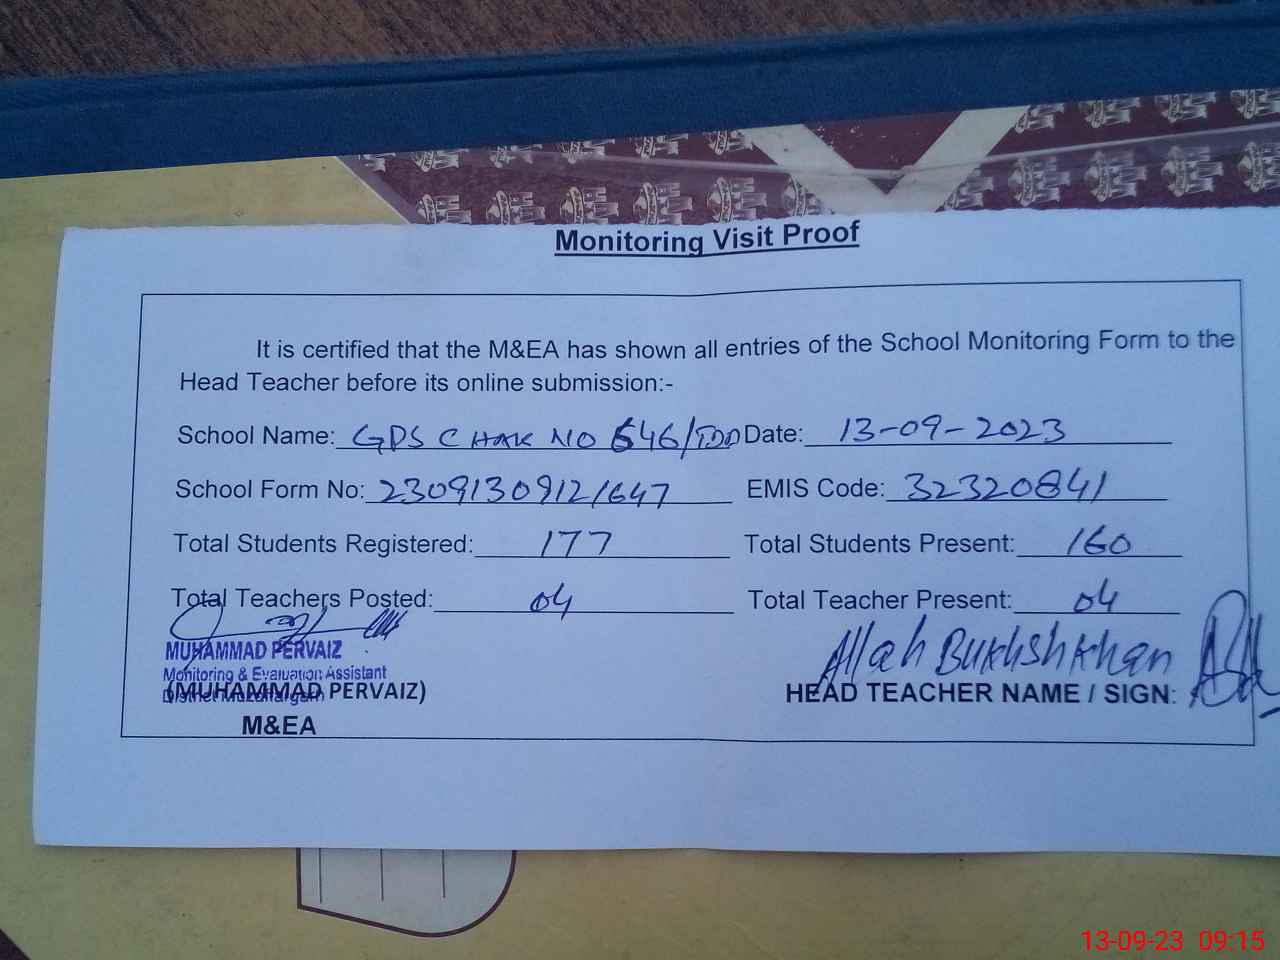 Monitoring Visit Proof
It is certified that the M&EA has shown all entries of the School Monitoring Form to the
Head Teacher before its online submission:-
School Name: GPS CHAK NO 646/TDA Date: 13-09-2023
School Form No: 2309130912/647 EMIS Code: 32320841
Total Students Registered: 177 Total Students Present: 160
Total Teachers Posted: 04 Total Teacher Present: 04
MUHAMMAD PERVAIZ Allah Bukhsh Khan
Monitoring & Evaluation Assistant
District Muzaffargarh
(MUHAMMAD PERVAIZ) HEAD TEACHER NAME / SIGN:
M&EA
13-09-23 09:15